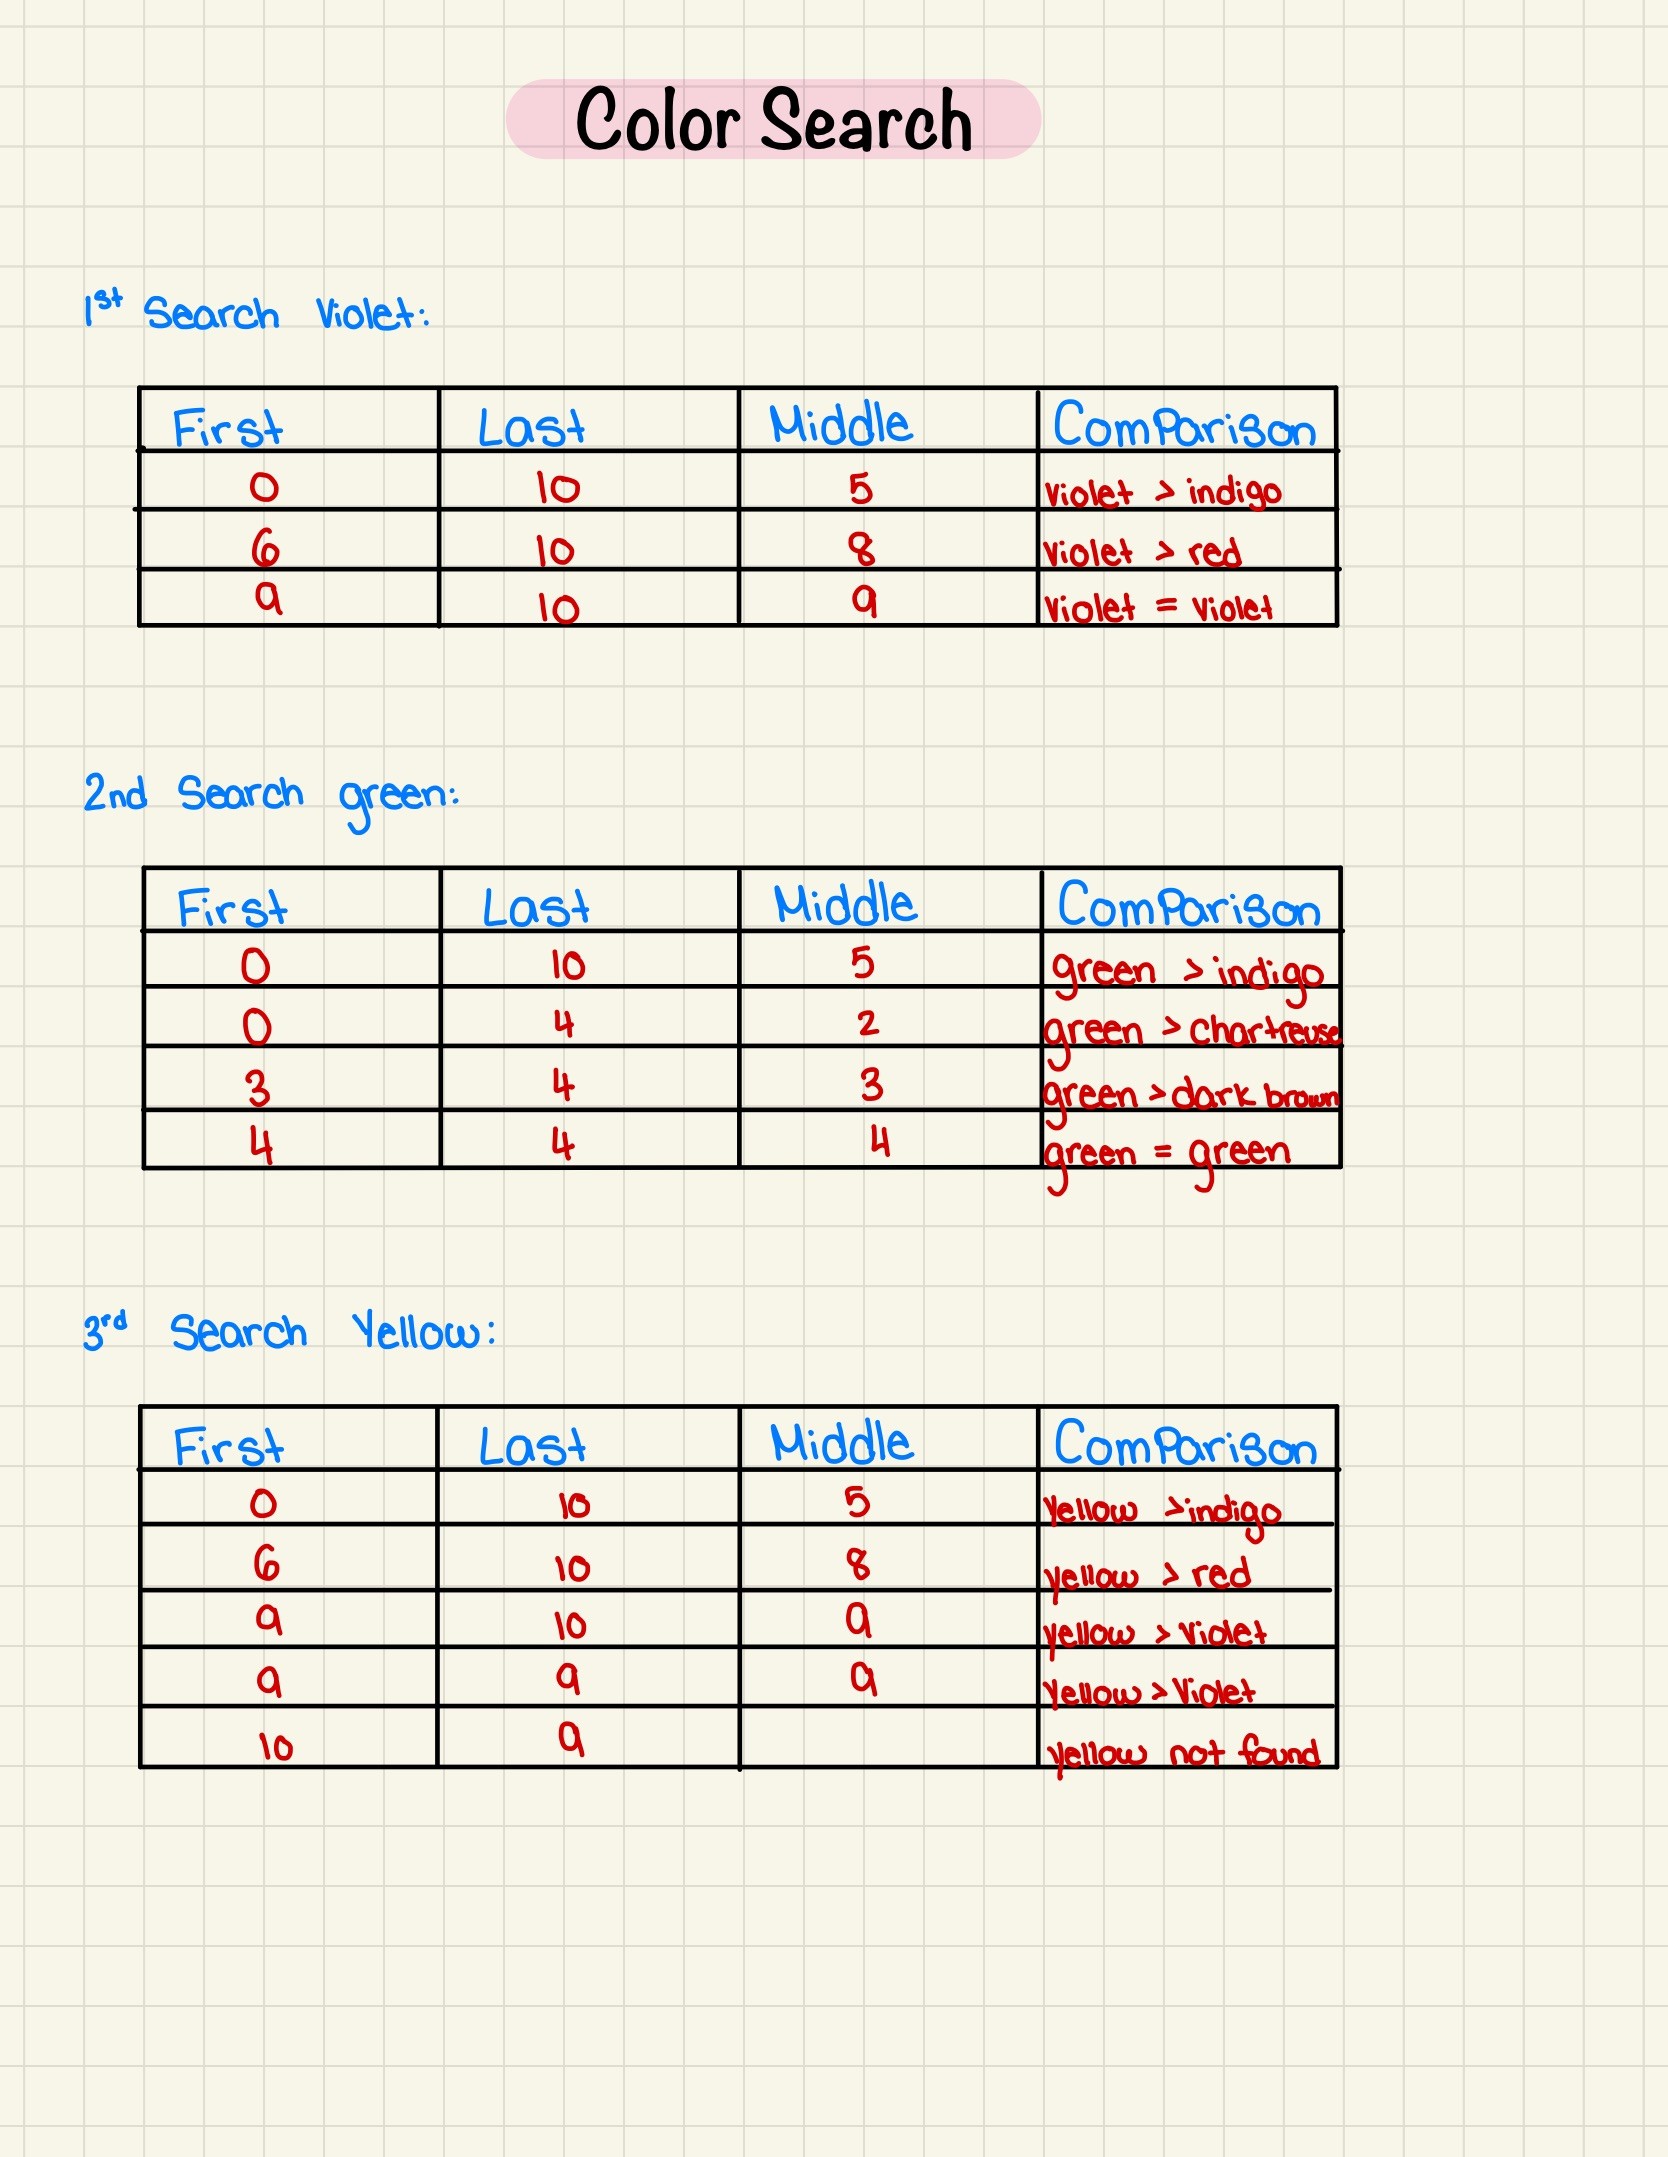 Color Search
1st Search Violet:
First Last Middle Comparison
0 10 5 violet > indigo
6 10 8 violet > red
9 10 9 violet = violet
2nd Search green:
First Last Middle Comparison
0 10 5 green > indigo
0 4 2 green > chartreuse
3 4 3 green > dark brown
4 4 4 green = green
3rd Search Yellow:
First Last Middle Comparison
0 10 5 yellow > indigo
6 10 8 yellow > red
9 10 9 yellow > violet
9 9 9 yellow > violet
10 9 yellow not found